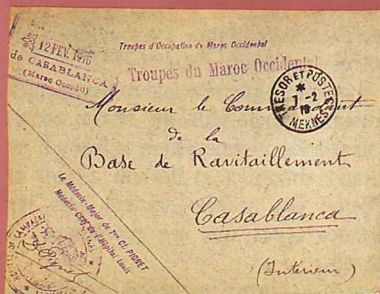 12 FEV. 1916
de CASABLANCA
(Maroc Occid)
Troupes d'Occupation du Maroc Occidental
Troupes du Maroc Occidental
TRESOR ET POSTES
*
7-2
16
MEKNES
Monsieur le Commandant
de la
Base de Ravitaillement
Casablanca
(Intérieur)
Le Médecin-Major de 1re Cl. PIGNET
Médecin Chef de l'Hôpital Louis
CAMPAGNE